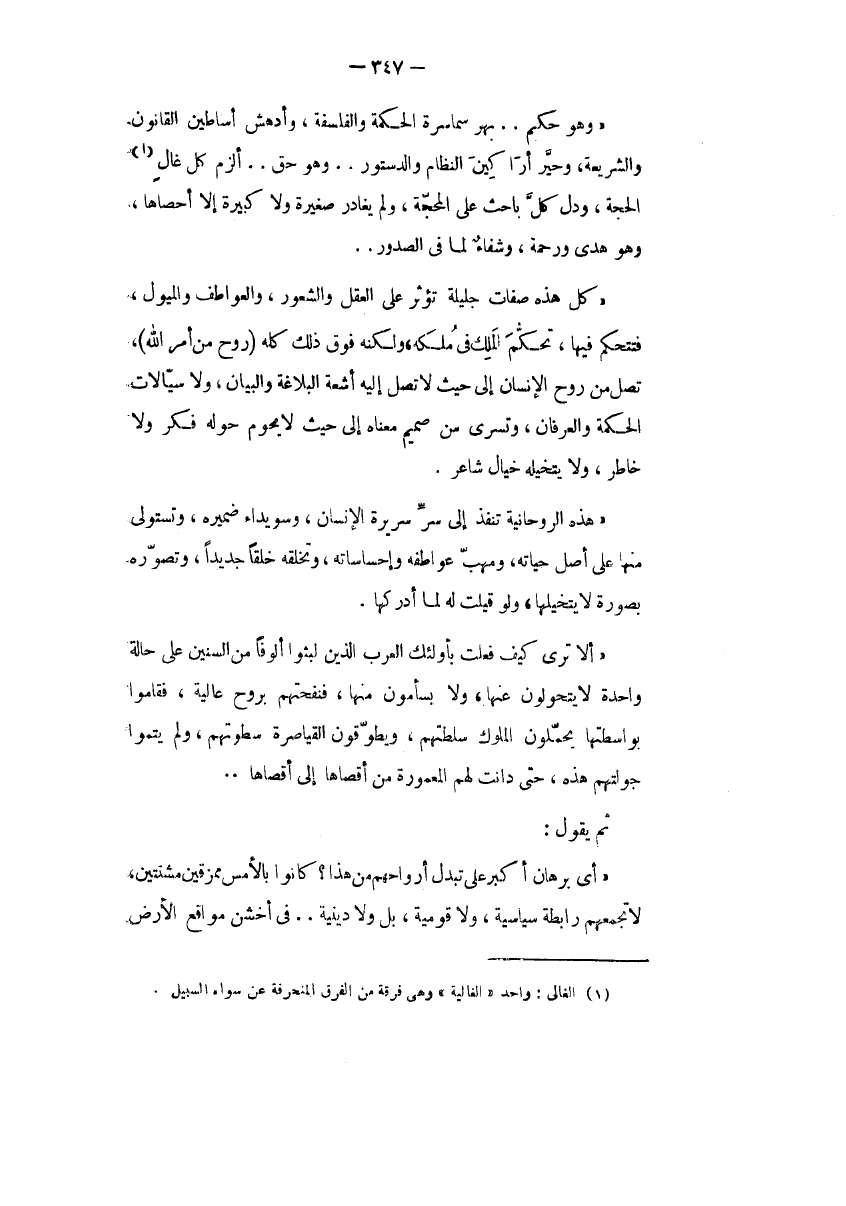 — ٣٤٧ —
« وهو حكيم . . بهر سماسرة الحكمة والفلسفة ، وأدهش أساطين القانون
والشريعة، وحيَّر أراكين النظام والدستور . . وهو حق . . ألزم كل غالٍ (١)
الحجة ، ودل كلَّ باحث على المحجّة ، ولم يغادر صغيرة ولا كبيرة إلا أحصاها ،
وهو هدى ورحمة ، وشفاءٌ لما فى الصدور . .
« كل هذه صفات جليلة تؤثر على العقل والشعور ، والعواطف والميول ،
فتتحكم فيها ، تحكُّمَ المَلِك فى مُلكه، ولكنه فوق ذلك كله (روح من أمر الله)،
تصل من روح الإنسان إلى حيث لا تصل إليه أشعة البلاغة والبيان ، ولا سيّالات
الحكمة والعرفان ، وتسرى من صميم معناه إلى حيث لا يحوم حوله فكر ولا
خاطر ، ولا يتخيله خيال شاعر .
« هذه الروحانية تنفذ إلى سرِّ سريرة الإنسان ، وسويداء ضميره ، وتستولى
منها على أصل حياته، ومهبّ عواطفه وإحساساته ، وتخلقه خلقاً جديداً ، وتصوّره
بصورة لا يتخيلها ، ولو قيلت له لما أدركها .
« ألا ترى كيف فعلت بأولئك العرب الذين لبثوا ألوفًا من السنين على حالة
واحدة لا يتحولون عنها، ولا يسأمون منها ، فنفحتهم بروح عالية ، فقاموا
بواسطتها يحمّلون الملوك سلطتهم ، ويطوّقون القياصرة سطوتهم ، ولم يتموا
جولتهم هذه ، حتى دانت لهم المعمورة من أقصاها إلى أقصاها . .
ثم يقول :
« أى برهان أكبر على تبدل أرواحهم من هذا ؟ كانوا بالأمس ممزقين مشتتين،
لا تجمعهم رابطة سياسية ، ولا قومية ، بل ولا دينية . . فى أخشن مواقع الأرض
(١) الغالى : واحد « الغالية » وهى فرقة من الفرق المنحرفة عن سواء السبيل .